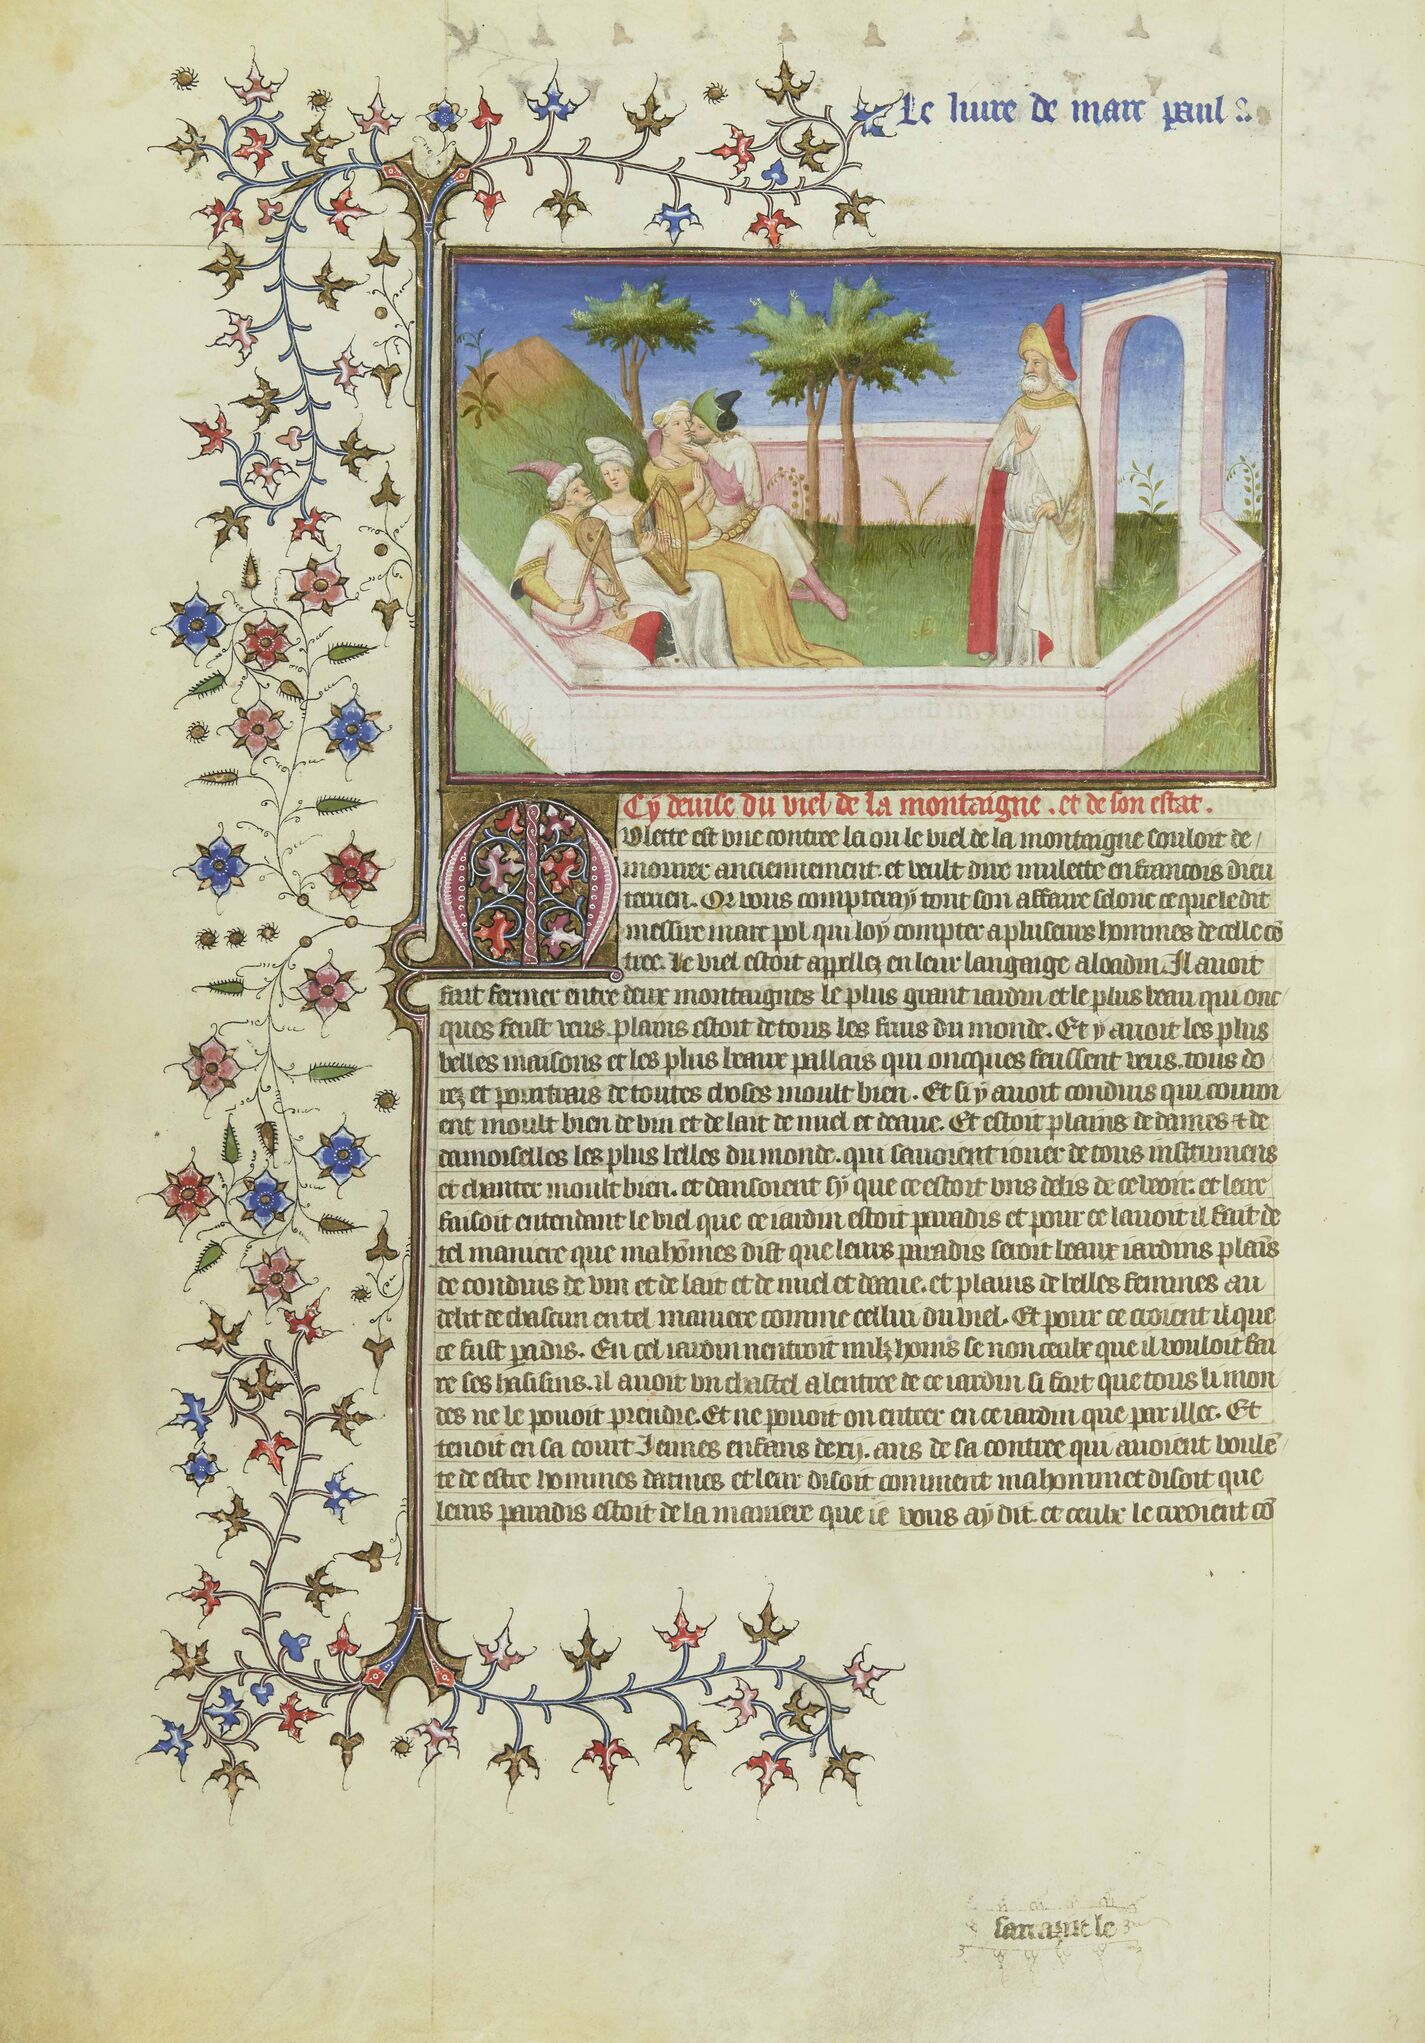 Le liure de marc paul
Cy deuise du viel de la montaigne . et de son estat .
Mulette est vne contree la ou le viel de la montaigne souloit de
mourer anciennement . et veult dire mulette en francois dieu
terrien . Or vous compteray tout son affaire selonc ce que le dit
messire marc pol qui loy compter a pluseurs hommes de celle cō
tree . Le viel estoit appellez en leur langaige aloadin . Il auoit
fait fermer entre deux montaignes le plus grant iardin et le plus beau qui onc
ques feust veus . plains estoit de tous les fruis du monde . Et y auoit les plus
belles maisons et les plus beaux pallais qui oncques feussent veus . tous do
rez et pourtrais de toutes choses moult bien . Et si y auoit conduis qui couroi
ent moult bien de vin et de lait de miel et deaue . Et estoit plains de dames ⁊ de
damoiselles les plus belles du monde . qui sauoient iouer de tous instrumens
et chanter moult bien . et dansoient sy que ce estoit vns delis de ce veoir . et leur
faisoit entendant le viel que ce iardin estoit paradis et pour ce lauoit il fait de
tel maniere que mahōmes dist que leurs paradis seroit beaux iardins plaīs
de conduis de vin et de lait et de miel et deaue . et plains de belles femmes au
delit de chascun en tel maniere comme cellui du viel . Et pour ce croient il que
ce fust paradis . En cel iardin nentroit nulz homs se non ceulx que il vouloit fai
re ses hasisins . il auoit vn chastel a lentree de ce iardin si fort que tous li mon
des ne le pouoit prendre . Et ne pouoit on entrer en ce iardin que par illec . Et
tenoit en sa court Jeunes enfans de xij . ans de sa contree qui auoient voulē
te de estre hommes darmes et leur disoit comment mahommet disoit que
leurs paradis estoit de la maniere que ie vous ay dit . et ceulx le croient cō